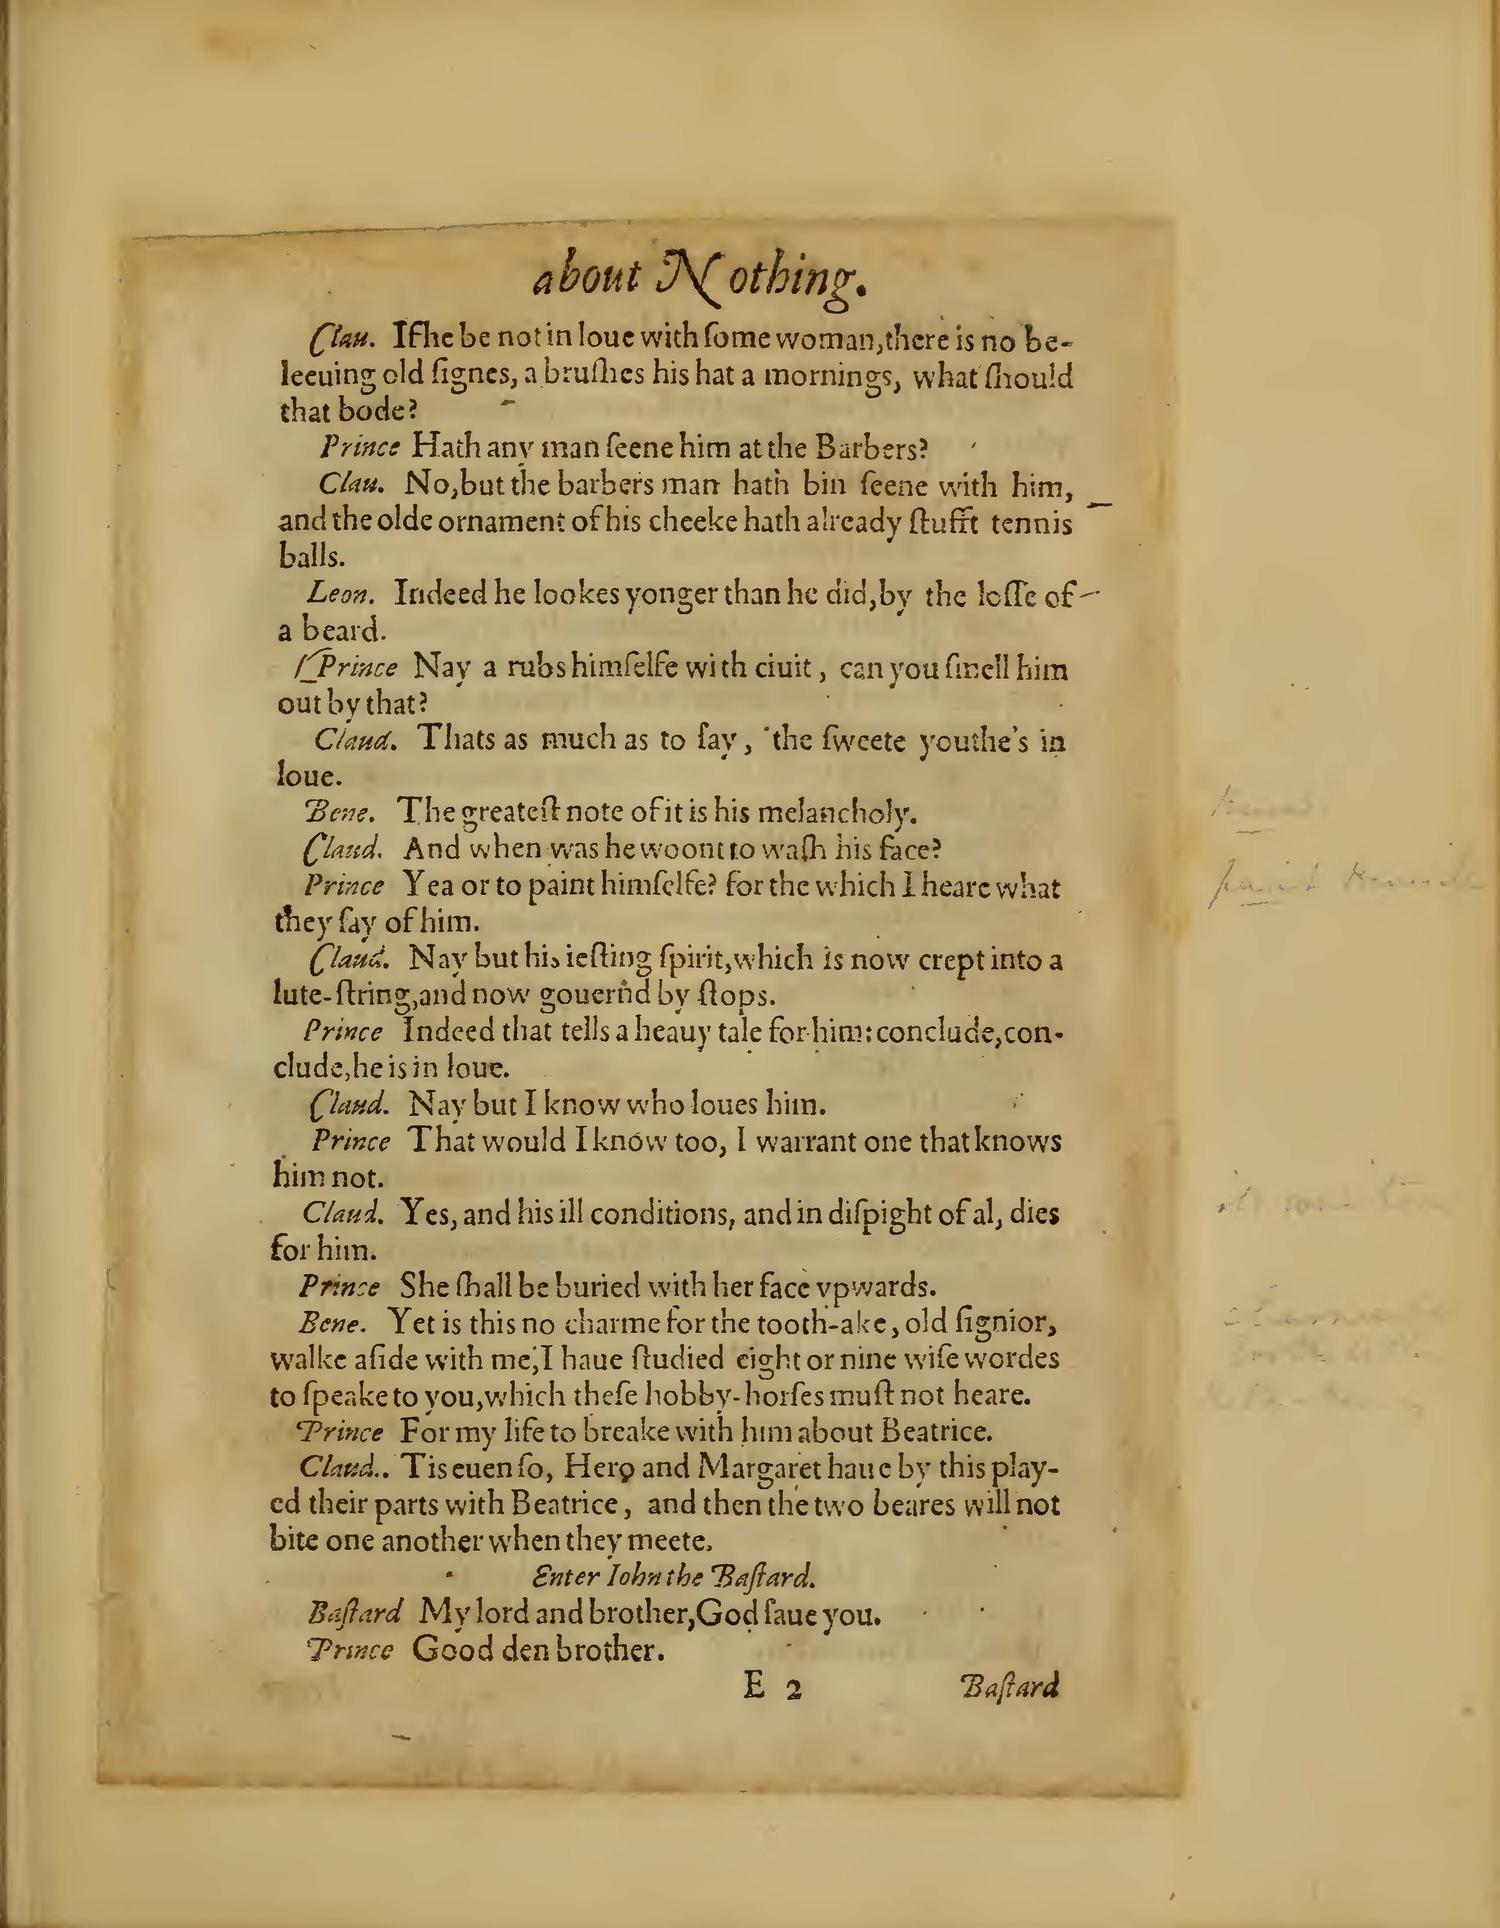 about Nothing.
Clau. If he be not in loue with ſome woman, there is no be-
leeuing old ſignes, a bruſhes his hat a mornings, what ſhould
that bode?
Prince Hath any man ſeene him at the Barbers?
Clau. No, but the barbers man hath bin ſeene with him,
and the olde ornament of his cheeke hath already ſtufft tennis
balls.
Leon. Indeed he lookes yonger than he did, by the loſſe of
a beard.
Prince Nay a rubs himſelfe with ciuit, can you ſmell him
out by that?
Claud. Thats as much as to ſay, the ſweete youthe's in
loue.
Bene. The greateſt note of it is his melancholy.
Claud. And when was he woont to waſh his face?
Prince Yea or to paint himſelfe? for the which I heare what
they ſay of him.
Claud. Nay but his ieſting ſpirit, which is now crept into a
lute-ſtring, and now gouernd by ſtops.
Prince Indeed that tells a heauy tale for him: conclude, con-
clude, he is in loue.
Claud. Nay but I know who loues him.
Prince That would I know too, I warrant one that knows
him not.
Claud. Yes, and his ill conditions, and in diſpight of al, dies
for him.
Prince She ſhall be buried with her face vpwards.
Bene. Yet is this no charme for the tooth-ake, old ſignior,
walke aſide with me, I haue ſtudied eight or nine wiſe wordes
to ſpeake to you, which theſe hobby-horſes muſt not heare.
Prince For my life to breake with him about Beatrice.
Claud.. Tis euen ſo, Hero and Margaret haue by this play-
ed their parts with Beatrice, and then the two beares will not
bite one another when they meete.
Enter Iohn the Baſtard.
Baſtard My lord and brother, God ſaue you.
Prince Good den brother.
E 2 Baſtard